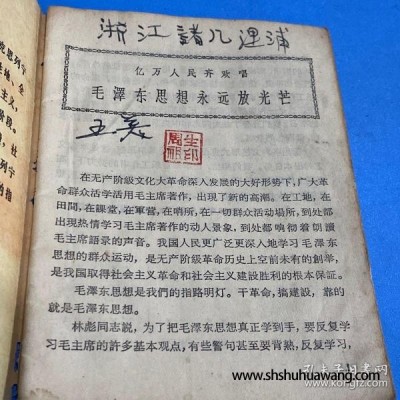 浙江諸几
亿万人民齐欢唱
毛澤东思想永远放光芒
王
在无产阶級文化大革命深入发展的大好形势下，广大革
命群众活学活用毛主席著作，出现了新的高潮。在工地，在
田間，在課堂，在軍營，在哨所，在一切群众活动場所，到处都
出现热情学习毛主席著作的动人景象，到处都响彻着朗讀
毛主席語录的声音。我国人民更广泛更深入地学习毛澤东
思想的群众运动，是无产阶級革命历史上空前未有的創举，
是我国取得社会主义革命和社会主义建設胜利的根本保証。
毛澤东思想是我們的指路明灯。干革命，搞建設，靠的
就是毛澤东思想。
林彪同志説，为了把毛澤东思想真正学到手，要反复学
习毛主席的許多基本观点，有些警句甚至要背熟，反复学习，
www.shshuhuawang.com